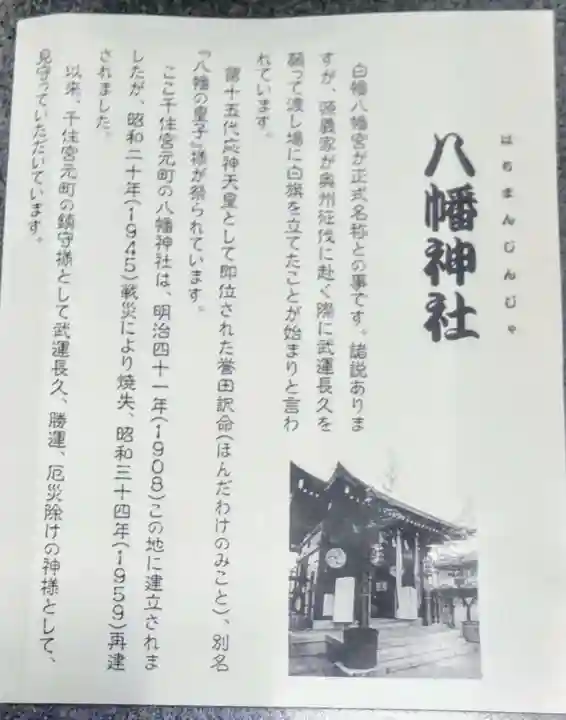 はちまんじんじゃ
八幡神社
白幡八幡宮が正式名称との事です。諸説ありま
すが、源義家が奥州征伐に赴く際に武運長久を
願って渡し場に白旗を立てたことが始まりと言わ
れています。
第十五代応神天皇として即位された誉田訳命(ほんだわけのみこと)、別名
『八幡の皇子』様が祭られています。
ここ千住宮元町の八幡神社は、明治四十一年(1908)この地に建立されま
したが、昭和二十年(1945)戦災により焼失、昭和三十四年(1959)再建
されました。
以来、千住宮元町の鎮守様として武運長久、勝運、厄災除けの神様として、
見守っていただいています。